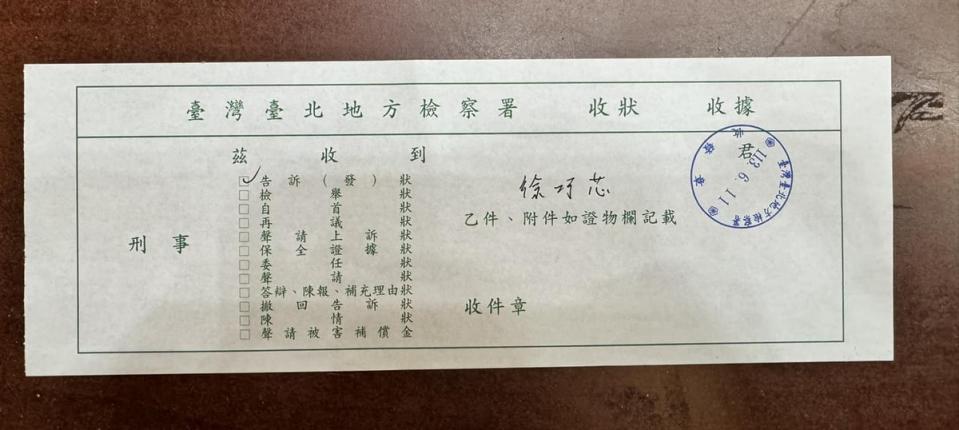 臺灣臺北地方檢察署 收狀 收據
茲收到
徐巧芯 君
告訴(發)狀
檢舉狀
自首狀
再議狀
聲請上訴狀
保全證據狀
委任狀
聲請狀
答辯、陳報、補充理由狀
撤回告訴狀
陳情狀
聲請被害補償金
刑事
乙件、附件如證物欄記載
收件章
臺灣臺北地方檢察署
113. 6. 11
收件章